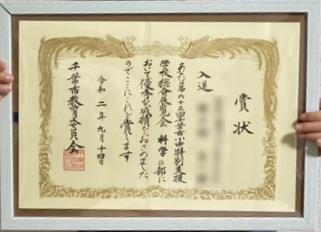 賞状
入選
あなたは第六十三回千葉市小中特別支援
学校総合展覧会 科学の部に
おいて優秀な成績をおさめました
のでここにこれを賞します
令和二年九月十四日
千葉市教育委員会